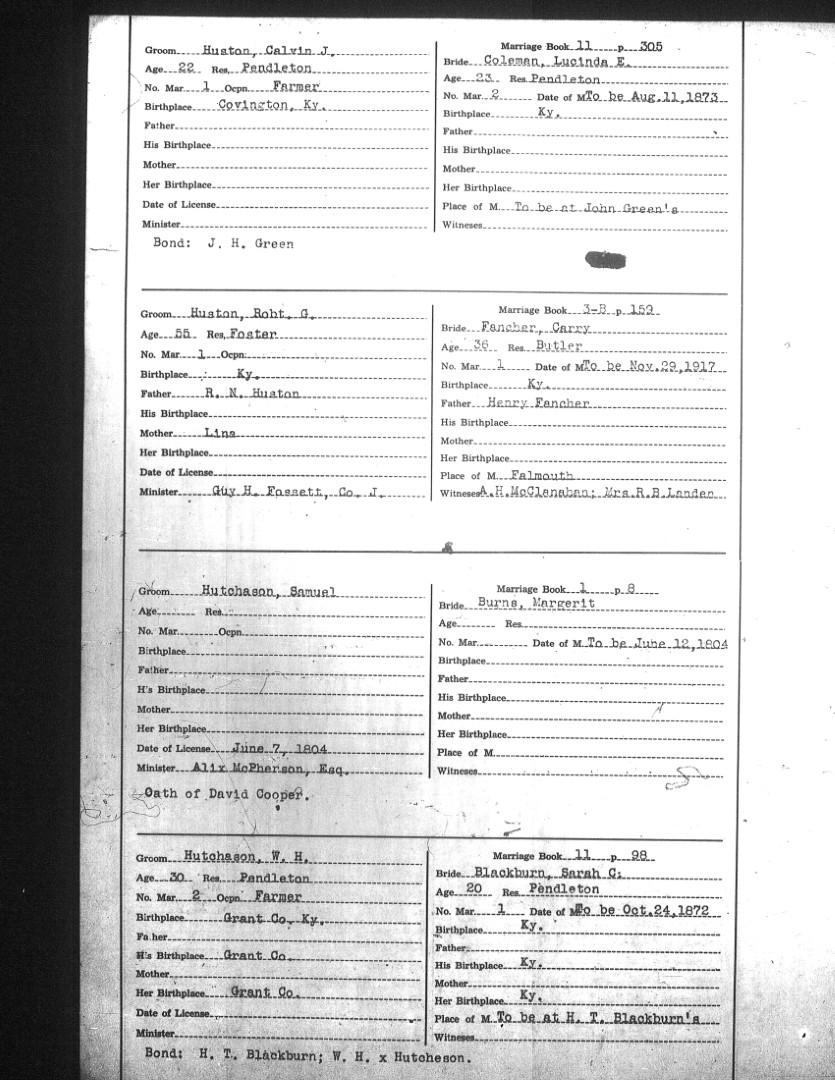 Groom Huston, Calvin J.
Age 22 Res. Pendleton
No. Mar. 1 Ocpn. Farmer
Birthplace Covington, Ky.
Father
His Birthplace
Mother
Her Birthplace
Date of License
Minister
Bond: J. H. Green
Marriage Book 11 p. 305
Bride Coleman, Lucinda E.
Age 23 Res. Pendleton
No. Mar. 2 Date of M. To be Aug.11,1873
Birthplace Ky.
Father
His Birthplace
Mother
Her Birthplace
Place of M. To be at John Green's
Witneses
Groom Huston, Robt. G.
Age 55 Res. Foster
No. Mar. 1 Ocpn.
Birthplace Ky.
Father R. N. Huston
His Birthplace
Mother Lina
Her Birthplace
Date of License
Minister Guy H. Fossett, Co. J.
Marriage Book 3-B p. 159
Bride Fancher, Carry
Age 36 Res. Butler
No. Mar. 1 Date of M. To be Nov.29,1917
Birthplace Ky.
Father Henry Fancher
His Birthplace
Mother
Her Birthplace
Place of M. Falmouth
Witneses A.H.McClanahan; Mrs.R.B.Landen
Groom Hutchason, Samuel
Age Res.
No. Mar. Ocpn.
Birthplace
Father
H's Birthplace
Mother
Her Birthplace
Date of License June 7, 1804
Minister Alix McPherson, Esq.
Oath of David Cooper.
Marriage Book 1 p. 8
Bride Burns, Margerit
Age Res.
No. Mar. Date of M. To be June 12,1804
Birthplace
Father
His Birthplace
Mother
Her Birthplace
Place of M.
Witneses
Groom Hutchason, W. H.
Age 30 Res. Pendleton
No. Mar. 2 Ocpn. Farmer
Birthplace Grant Co. Ky.
Father
H's Birthplace Grant Co.
Mother
Her Birthplace Grant Co.
Date of License
Minister
Bond: H. T. Blackburn; W. H. x Hutcheson.
Marriage Book 11 p. 98
Bride Blackburn, Sarah C.
Age 20 Res. Pendleton
No. Mar. 1 Date of M. To be Oct.24,1872
Birthplace Ky.
Father
His Birthplace Ky.
Mother
Her Birthplace Ky.
Place of M. To be at H. T. Blackburn's
Witneses